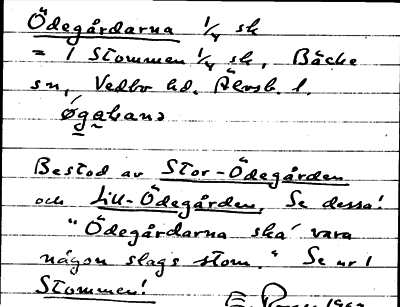 Ödegårdarna 1/4 sk
= 1 Stommen 1/4 sk, Bäcke
sn, Vedbo hd. Älvsb. l.
øgaħanɔ
Bestod av Stor-Ödegården
och Lill-Ödegården. Se dessa!
"Ödegårdarna ska' vara
någon slags stom." Se nr 1
Stommen!